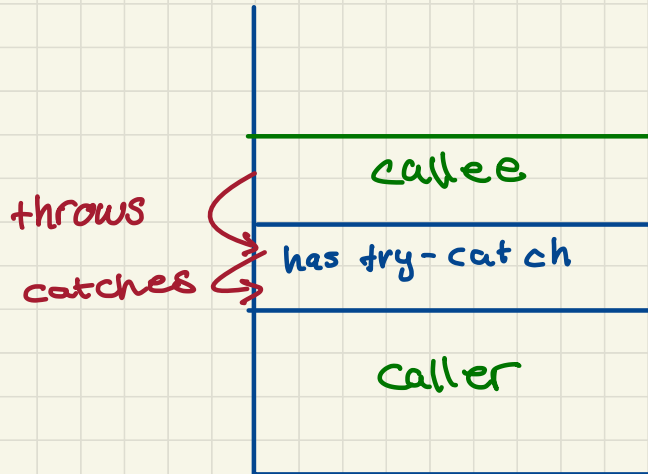 callee
throws
has try-catch
catches
caller